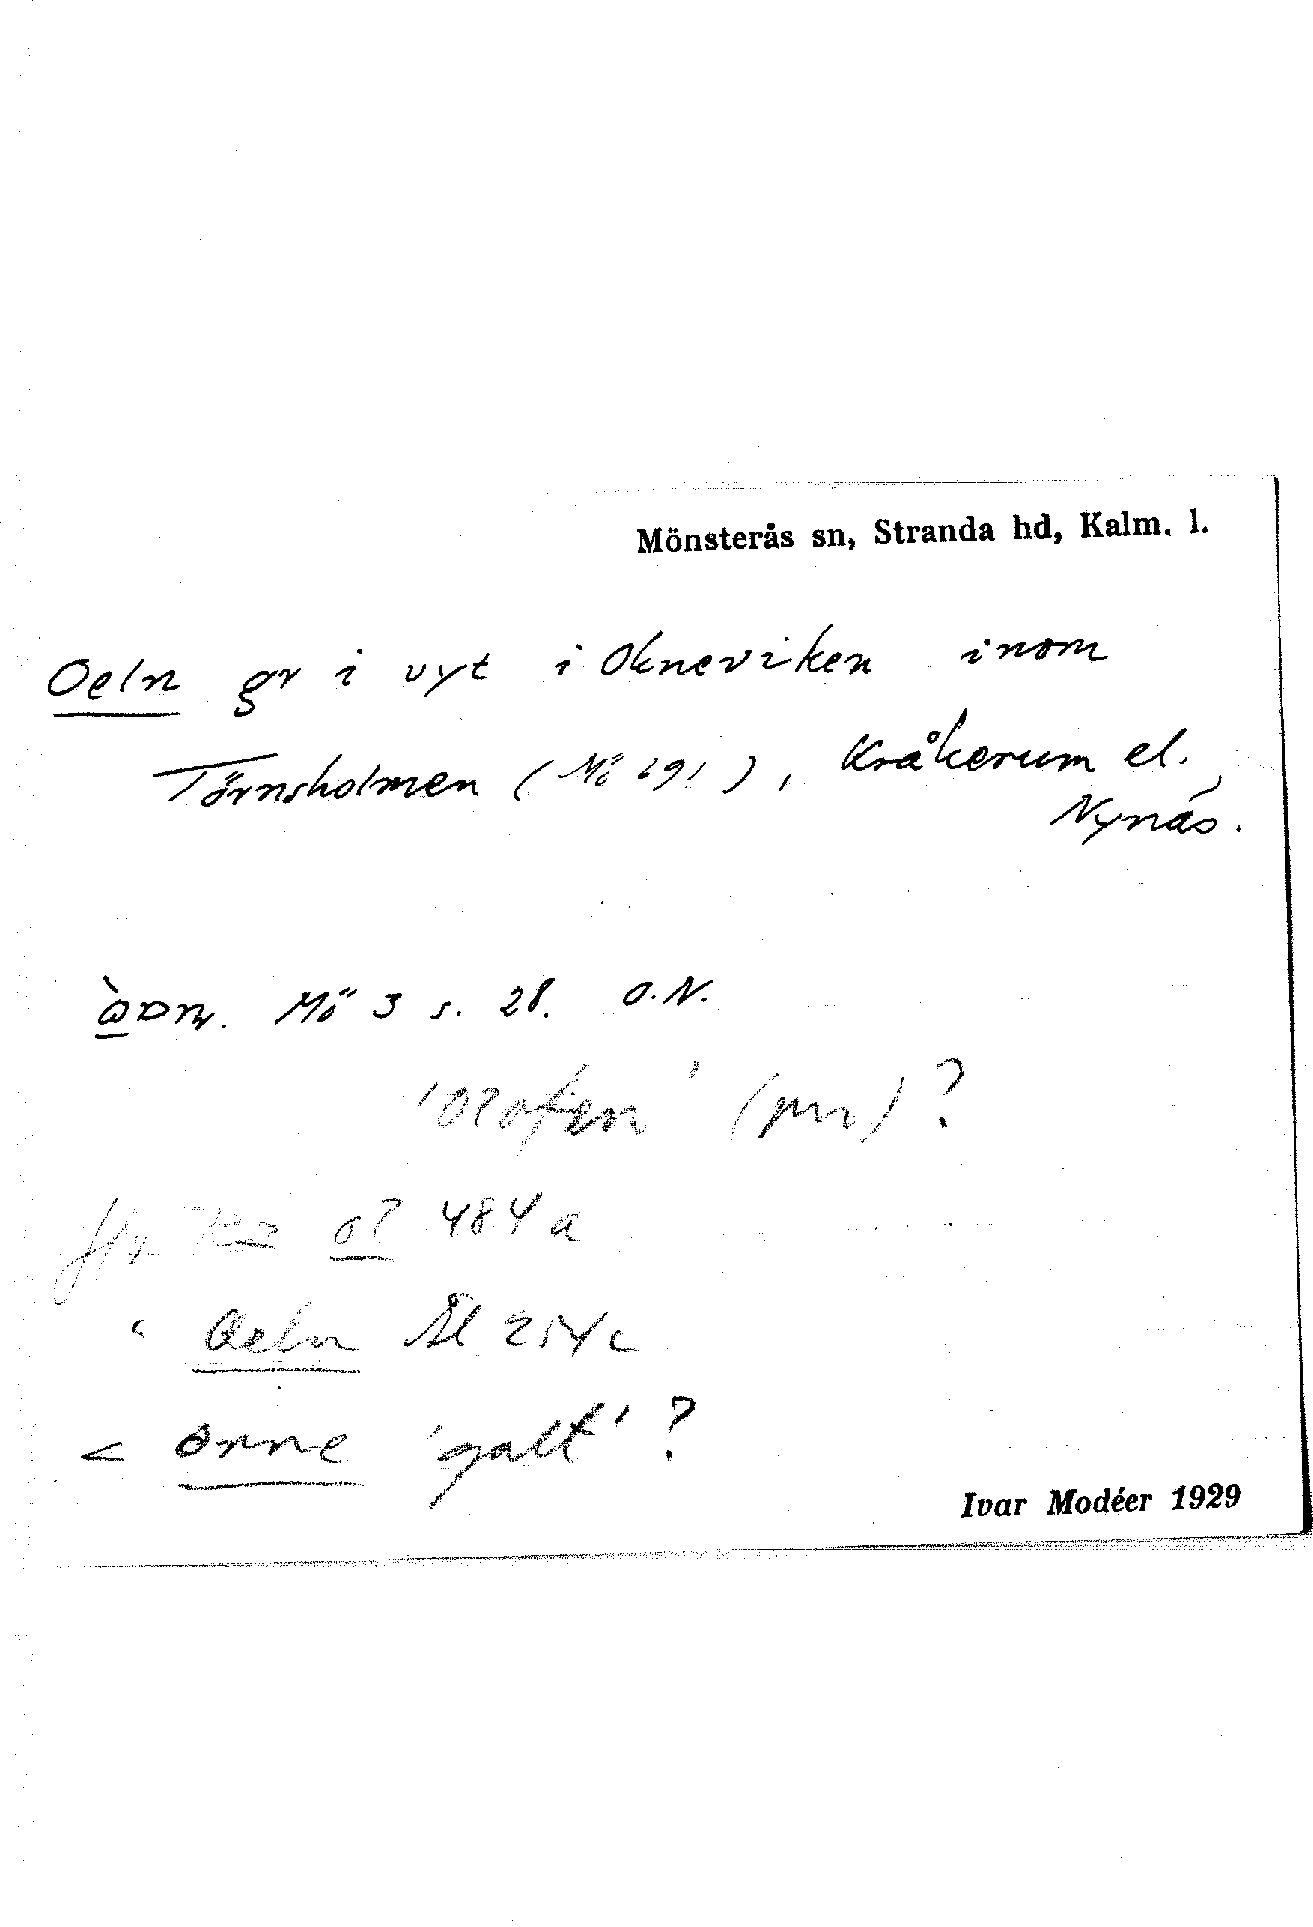 Mönsterås sn, Stranda hd, Kalm. l.
Oeln gr i vyt i Okneviken inom
Törnsholmen (Mö 291), Kråkerum el.
Nynäs.
Mö 3 s. 28. O.N.
(pn)?
484 a
" Oeln Ål 254c
< orne 'galt'?
Ivar Modéer 1929